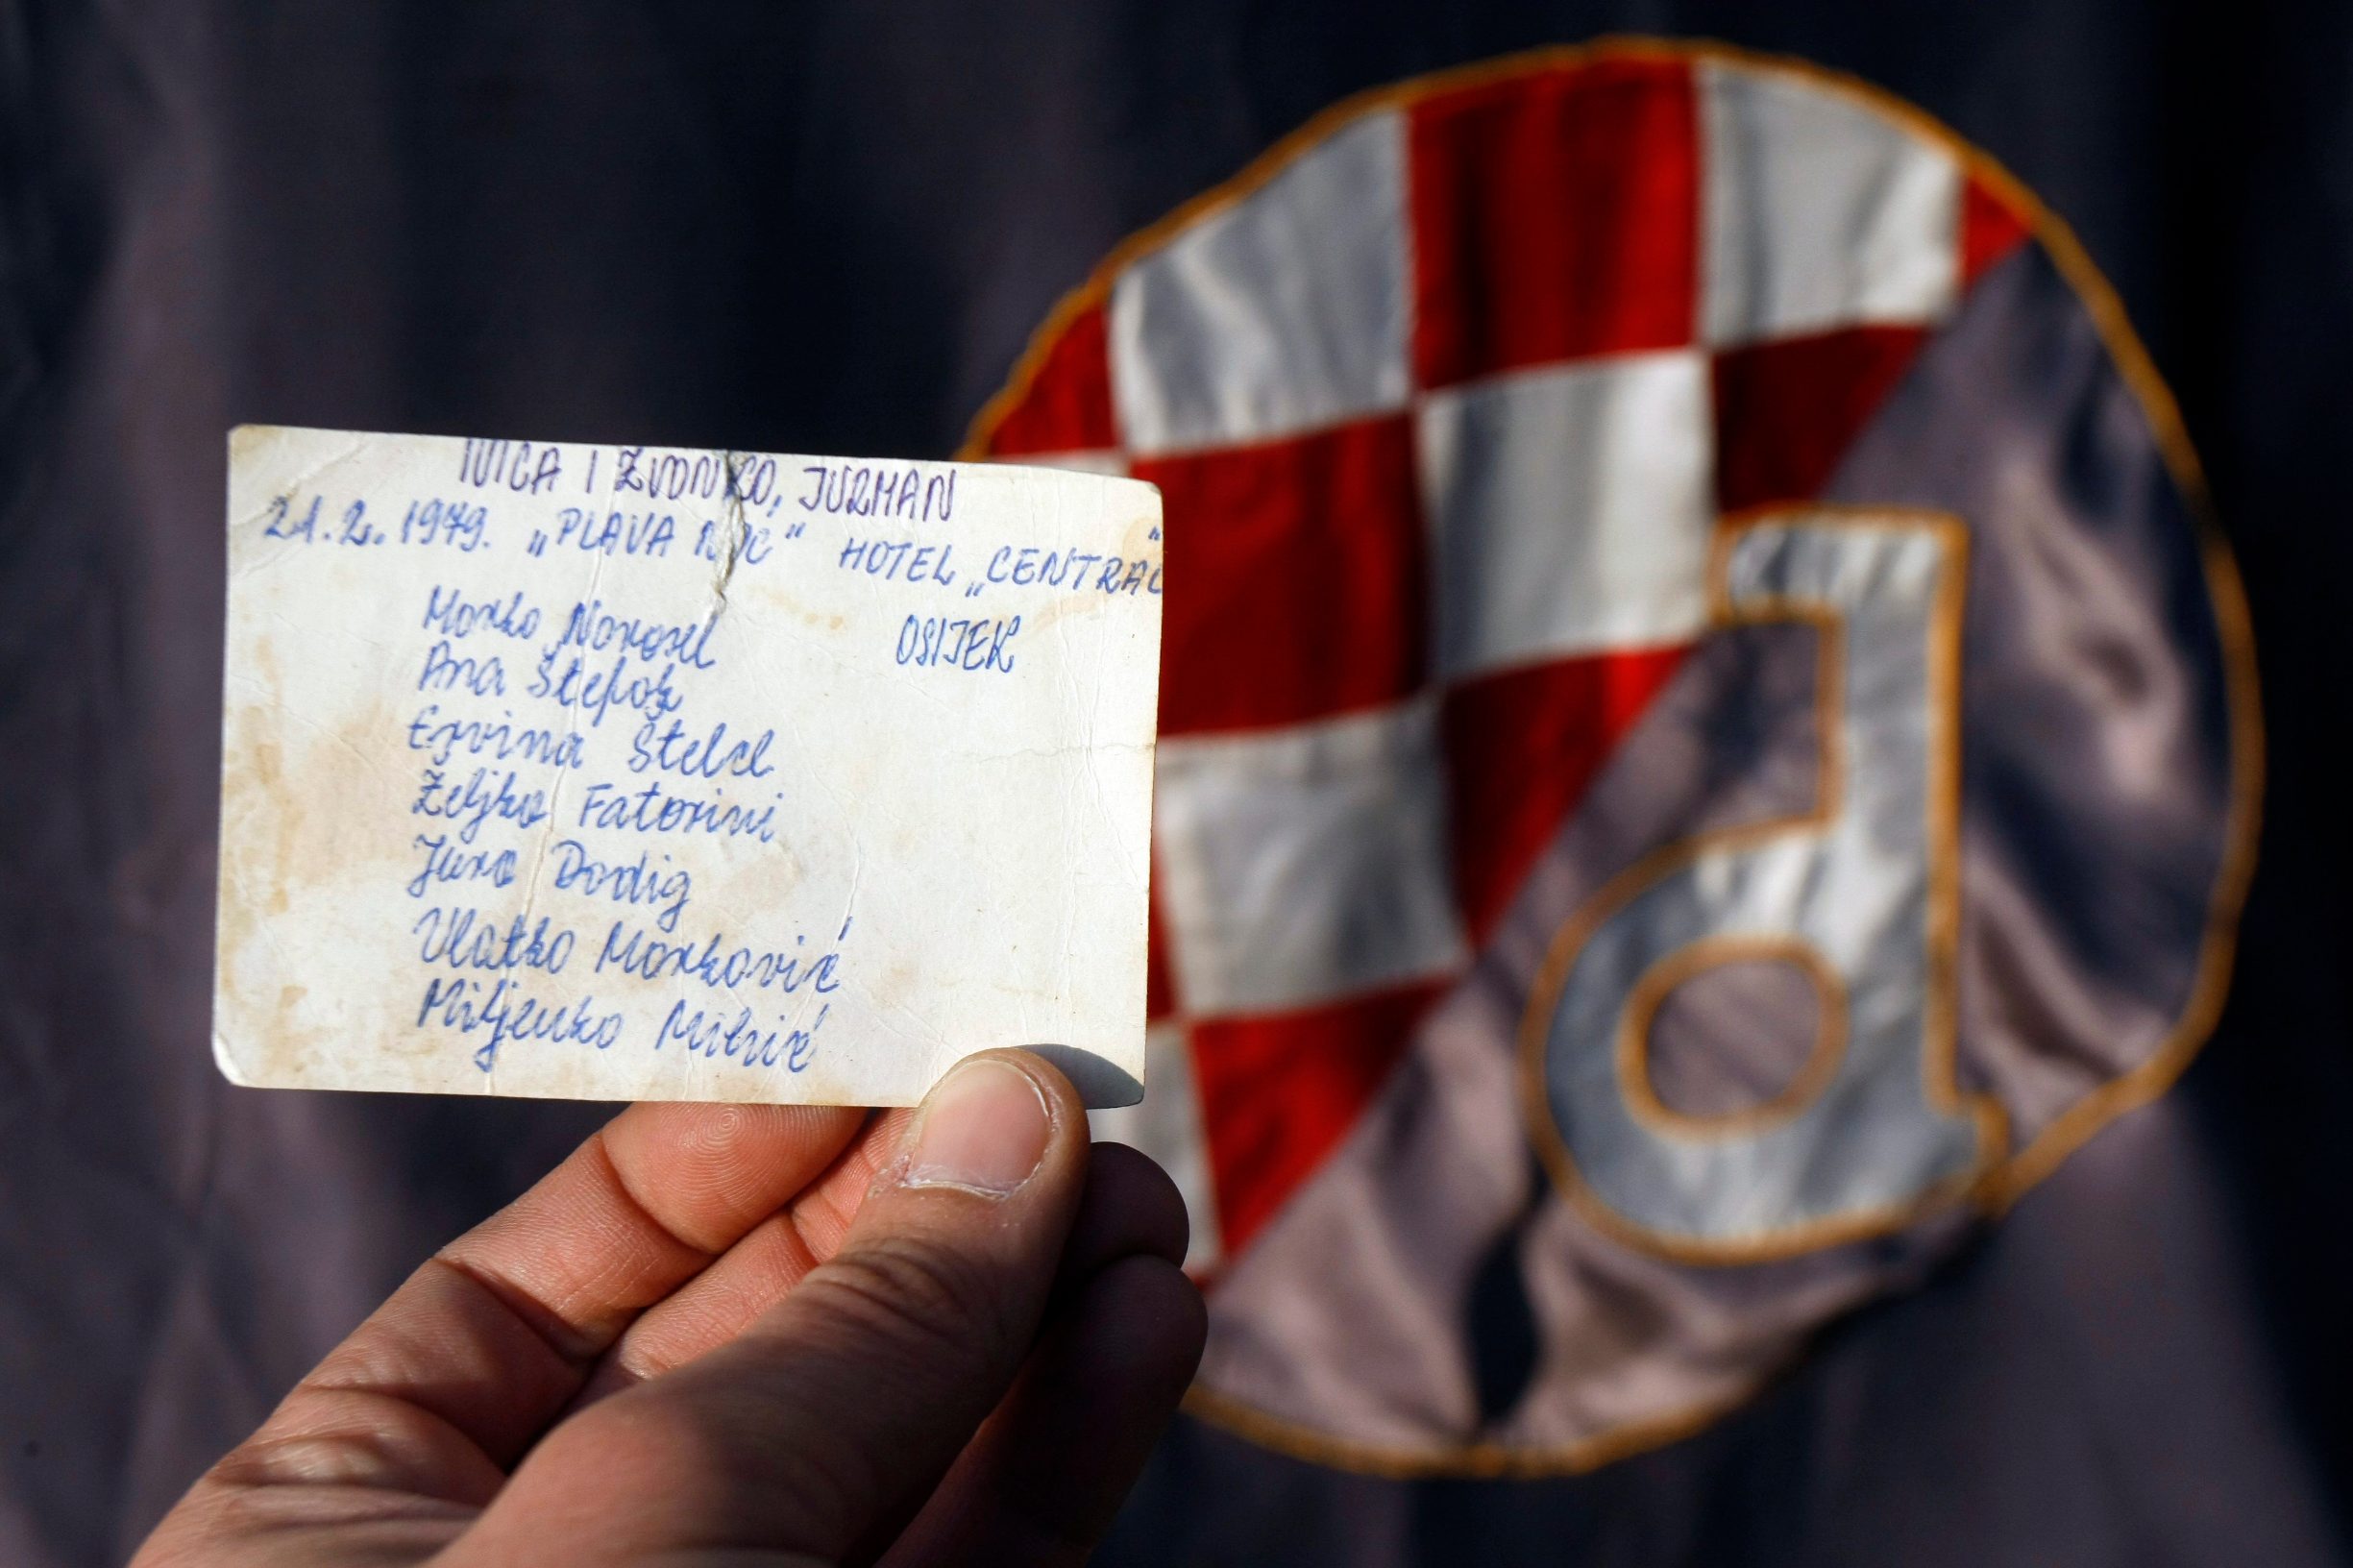 IVICA I ZVONKO, JURMAN
21.2.1979. „PLAVA NOĆ" HOTEL „CENTRAL"
OSIJEK
Marko Novosel
Ana Štefok
Ervina Štelcl
Željko Fatorini
Jura Dodig
Vlatko Marković
Miljenko Mihić
d